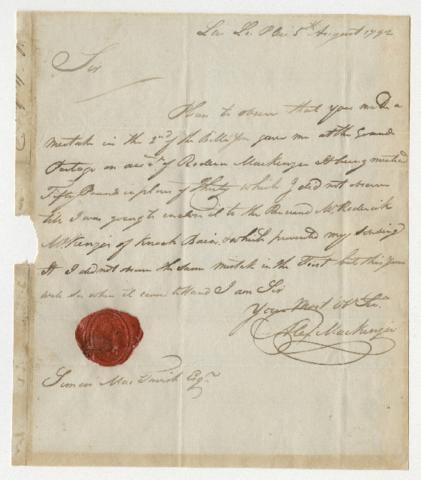 5th August 1792
Sir
Have to observe that you made a
mistake in the 2nd of the Bills you gave me at the Grand
Portage on acct of Roderic MacKenzie It being
Fifty Pounds in place of Thirty which I did not observe
till I was going to enclose it to the Revend Mr Roderick
McKenzie of Knock Bain & which prevented my sending
it I did not observe the same mistake in the First but this
will do when it comes to Hand I am Sir
Your Most Ob Ser
Alex MacKenzie
Simon MacTavish Esqr